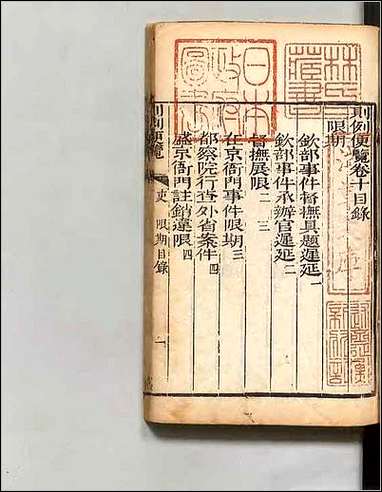 則例便覽卷十目錄
限期
欽部事件督撫具題遲延 一
欽部事件承辦官遲延 二
督撫展限 二 三
在京衙門事件限期 三
都察院行查外省案件 四
盛京衙門註銷違限 四
則例便覽
吏 限期目錄
一
林氏
藏書
日本
政府
圖書